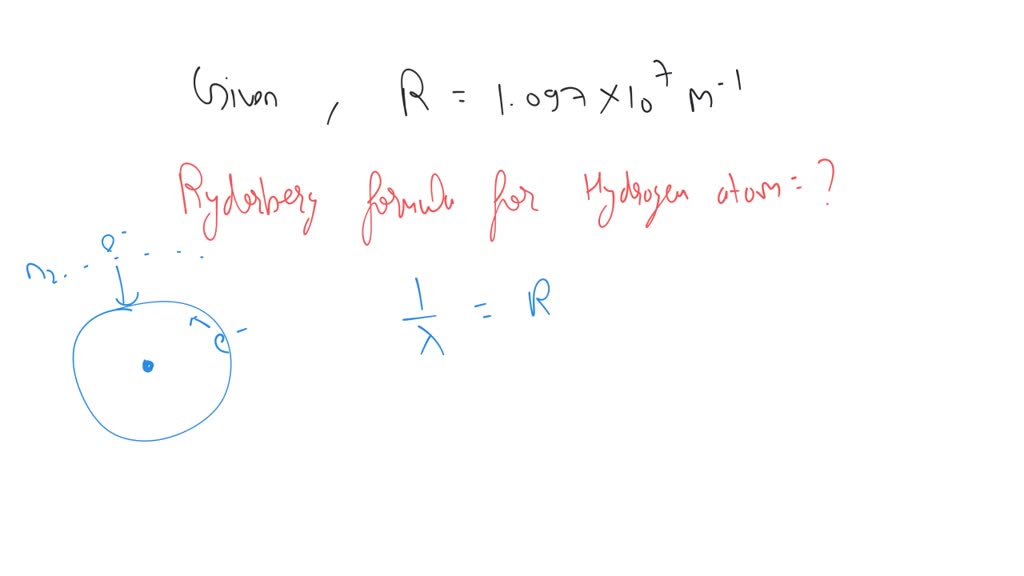 Given , R = 1.097 × 10⁷ m⁻¹
Ryderberg formula for Hydrogen atom = ?
e⁻
n₂
1/λ = R
e⁻